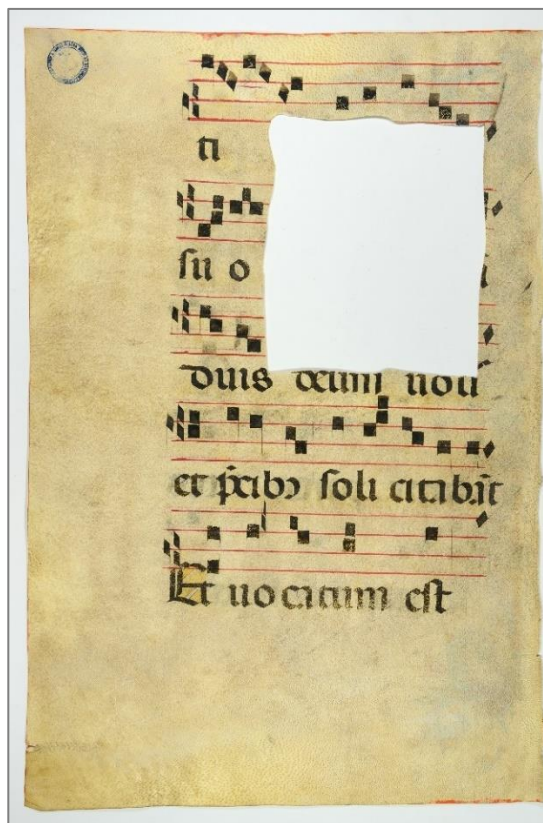 ti
su o
duis deum uoti
et p̄cibꝯ soli citabāt
Et uocatum est